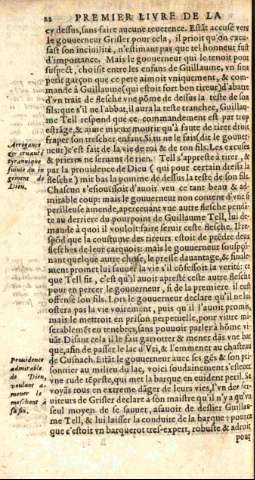 22 PREMIER LIVRE DE LA
cy dessus, sans faire aucune reuerence. Estãt accusé vers
le gouuerneur Grisler pour cela, il prioit qu'õ excu-
sast son inciuilité, n'estimant pas que tel honneur fust
d'importance. Mais le gouuerneur qui le tenoit pour
suspect, choisit entre les enfans de Guillaume, vn sien
petit garçon que ce pere aimoit vniquement, & com-
mande à Guillaume (qui estoit fort bon tireur) d'abatre
d'vn trait de flesche vne põme de dessus la teste de son
fils: que s'il ne l'abbat, il aura la teste tranchee, Guillau-
me Tell respond que ce commandement est par trop
estrãge, & aime mieux mourir qu'à faute de tirer droit
fraper son trescher enfant. Si tu ne le fais (dit le gouuer-
neur) c'est fait de la vie de toi & de ton fils. Les excuses
& prieres ne seruans de rien, Tell s'appreste à tirer, &
par la prouidence de Dieu (qui pour certain dressa la
flesche) mit bas la pomme de dessus la teste de son fils.
Chascun s'esiouissoit d'auoir veu ce tant beau & ad-
mirable coup: mais le gouuerneur non content d'vne si
perilleuse amende, aperceuant vne autre flesche pente
te au derriere du pourpoint de Guillaume Tell, lui de-
mande à quoi il vouloit faire seruir ceste flesche. Il re-
spõd que la coustume des tireurs estoit de prẽdre deux
flesches de leur carquois: mais le gouuerneur soupçõ-
nant quelque autre chose, le presse dauantage, & finale-
ment promet lui sauuer la vie s'il cõfessoit la verité: ce
que Tell fit, c'est qu'il auoit apresté ceste autre flesche
pour en percer le gouuerneur, si de la premiere il eust
offensé son fils. Lors le gouuerneur declare qu'il ne lui
ostera pas la vie voirement, puis qu'il l'auoit promis,
mais le mettroit en prison perpetuelle, pour viure mi-
serablemẽt en tenebres, sans pouuoir parler à hõme vi-
uãt. Disant cela il le fait garrotter & mener dãs vne bar-
que, afin de passer le lac d'Vri, & l'emmener au chasteau
de Cusnach. Estãt le gouuerneur auec ses gẽs & son pri-
sonnier au milieu du lac, voici soudainement s'esleuer
vne rude tẽpeste, qui met la barque en euident peril. Se
voyãs tous en extreme dãger de leurs vies, l'vn des ser-
uiteurs de Grisler declare à son maistre qu'il n'y a qu'vn
seul moyen de se sauuer, asauoir de deslier Guillau-
me Tell, & lui laisser la conduite de la barque: pource
que c'estoit vn barquerot tres-expert, robuste & adroit
pour
Arrogance
& cruauté
tyrannique
suiuie du iu
gement de
Dieu.
Prouidence
admirable
de Dieu,
voulant a-
mener le
meschant
à sa fin.